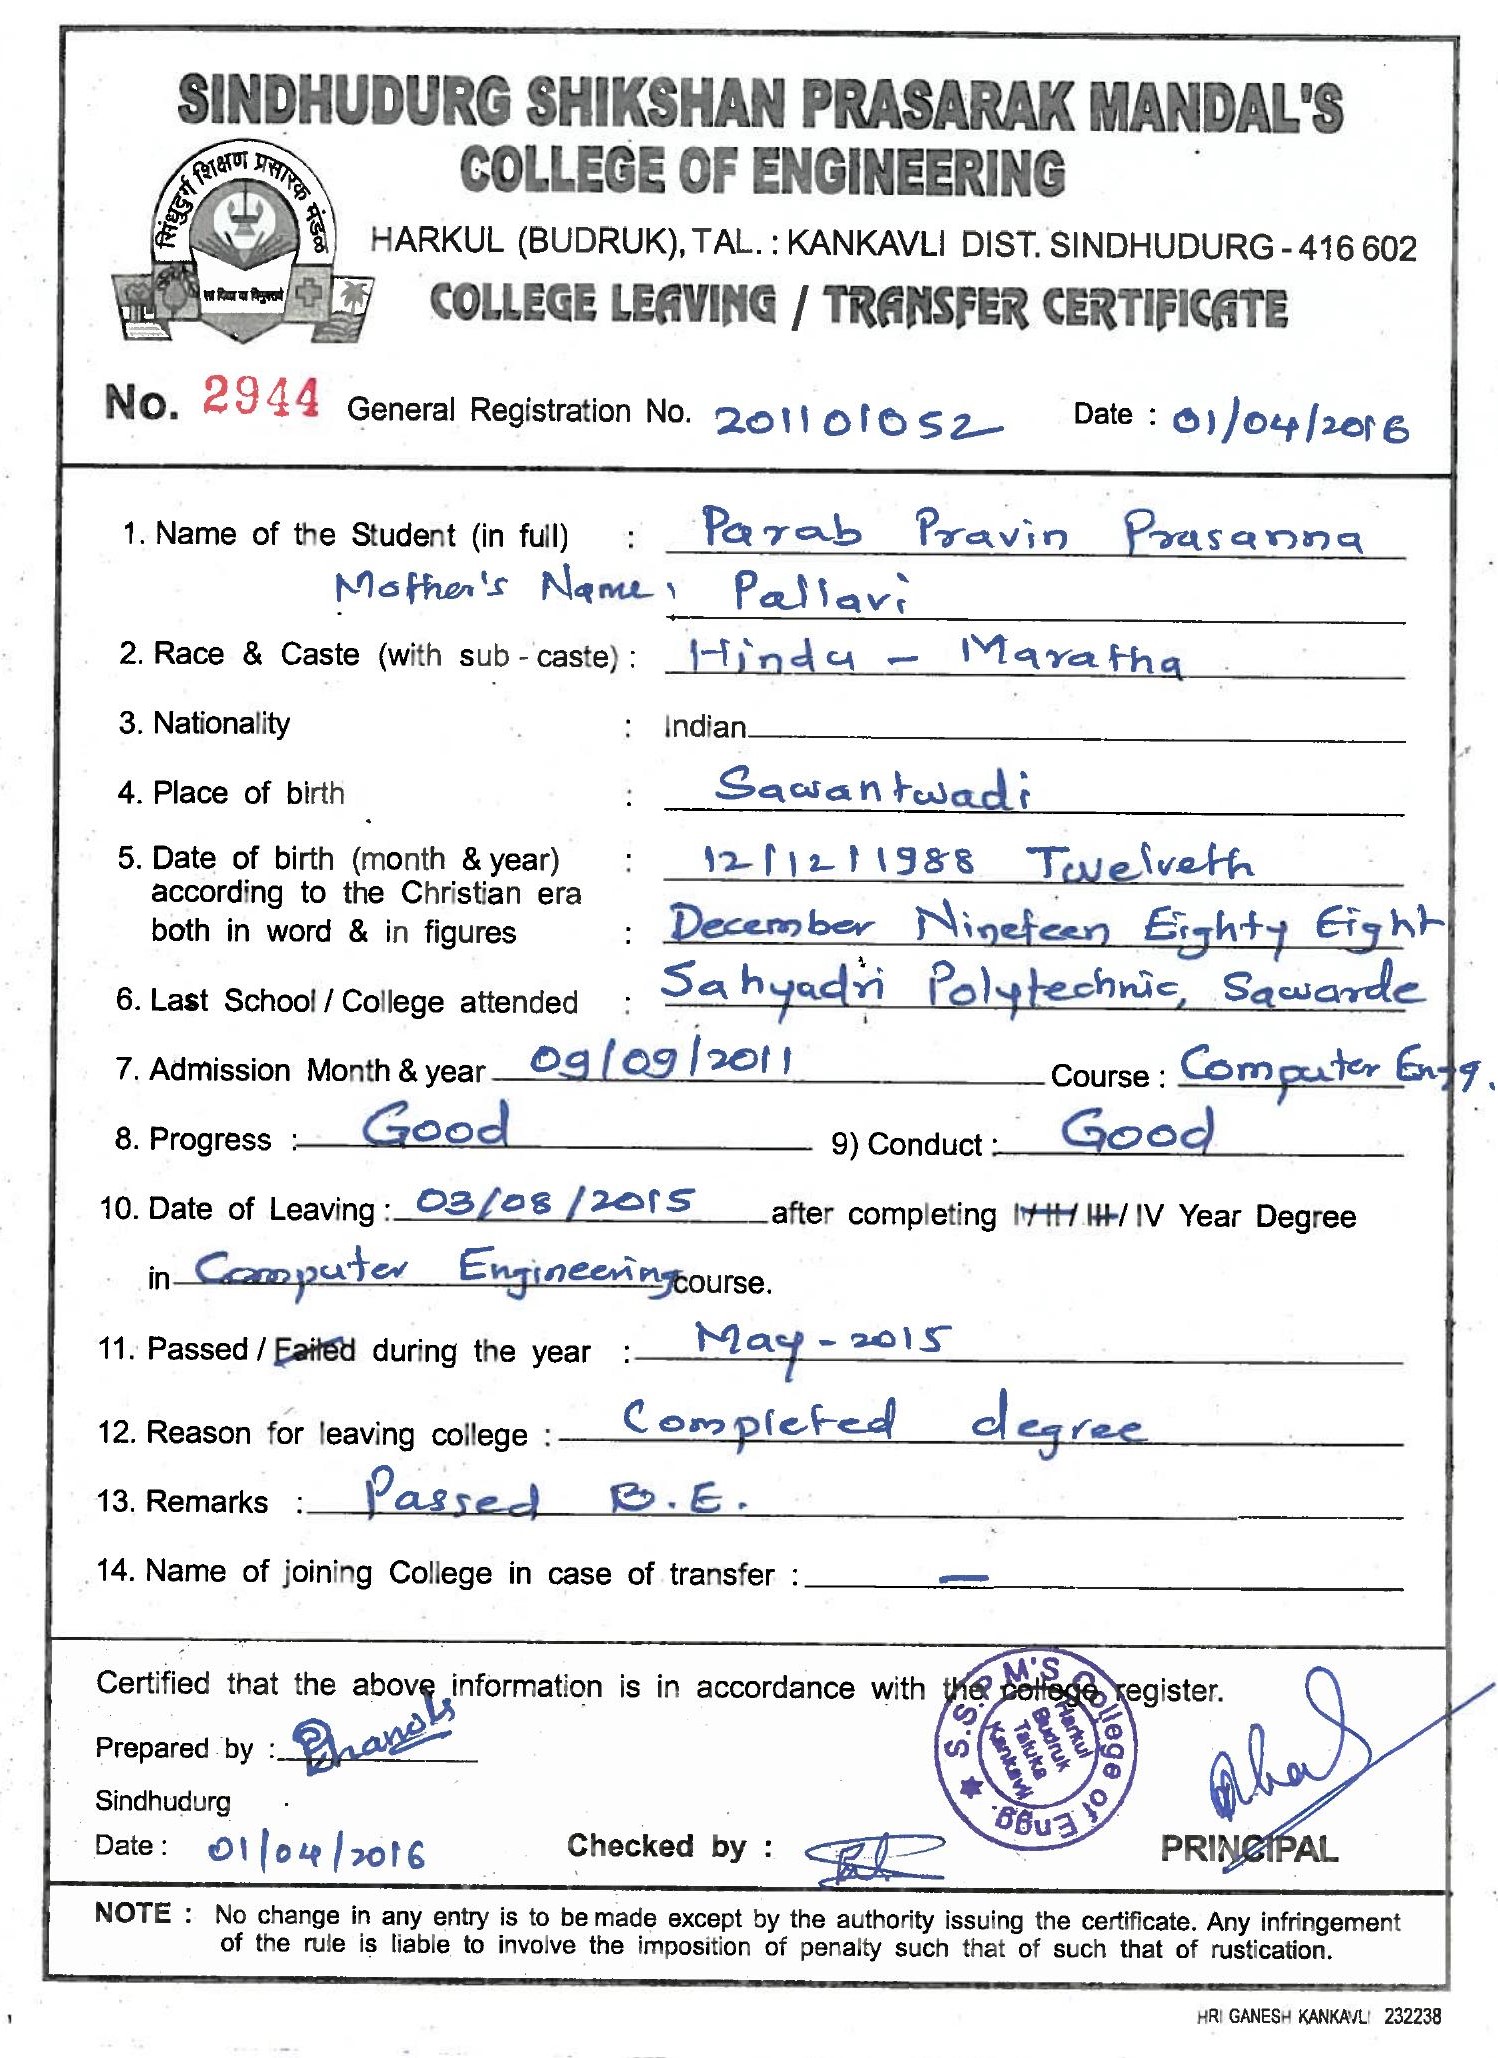 SINDHUDURG SHIKSHAN PRASARAK MANDAL'S
COLLEGE OF ENGINEERING
सिंधुदुर्ग शिक्षण प्रसारक मंडळ
HARKUL (BUDRUK), TAL. : KANKAVLI DIST. SINDHUDURG - 416 602
सा विद्या या विमुक्तये
COLLEGE LEAVING / TRANSFER CERTIFICATE
No. 2944 General Registration No. 201101052 Date : 01/04/2016
1. Name of the Student (in full) : Parab Pravin Prasanna
Mother's Name : Pallavi
2. Race & Caste (with sub - caste) : Hindu - Maratha
3. Nationality : Indian
4. Place of birth : Sawantwadi
5. Date of birth (month & year) : 12/12/1988 Twelveth
according to the Christian era
both in word & in figures : December Nineteen Eighty Eight
6. Last School / College attended : Sahyadri Polytechnic, Sawarde
7. Admission Month & year 09/09/2011 Course : Computer Engg.
8. Progress : Good 9) Conduct : Good
10. Date of Leaving : 03/08/2015 after completing I / II / III / IV Year Degree
in Computer Engineering course.
11. Passed / Failed during the year : May - 2015
12. Reason for leaving college : Completed degree
13. Remarks : Passed B.E.
14. Name of joining College in case of transfer : —
Certified that the above information is in accordance with the college register.
S.S.P.M'S College of Engg.
Harkul
Budruk
Taluka
Kankavli
Prepared by :
Sindhudurg
Date : 01/04/2016 Checked by : PRINCIPAL
NOTE : No change in any entry is to be made except by the authority issuing the certificate. Any infringement
of the rule is liable to involve the imposition of penalty such that of such that of rustication.
HRI GANESH KANKAVLI 232238